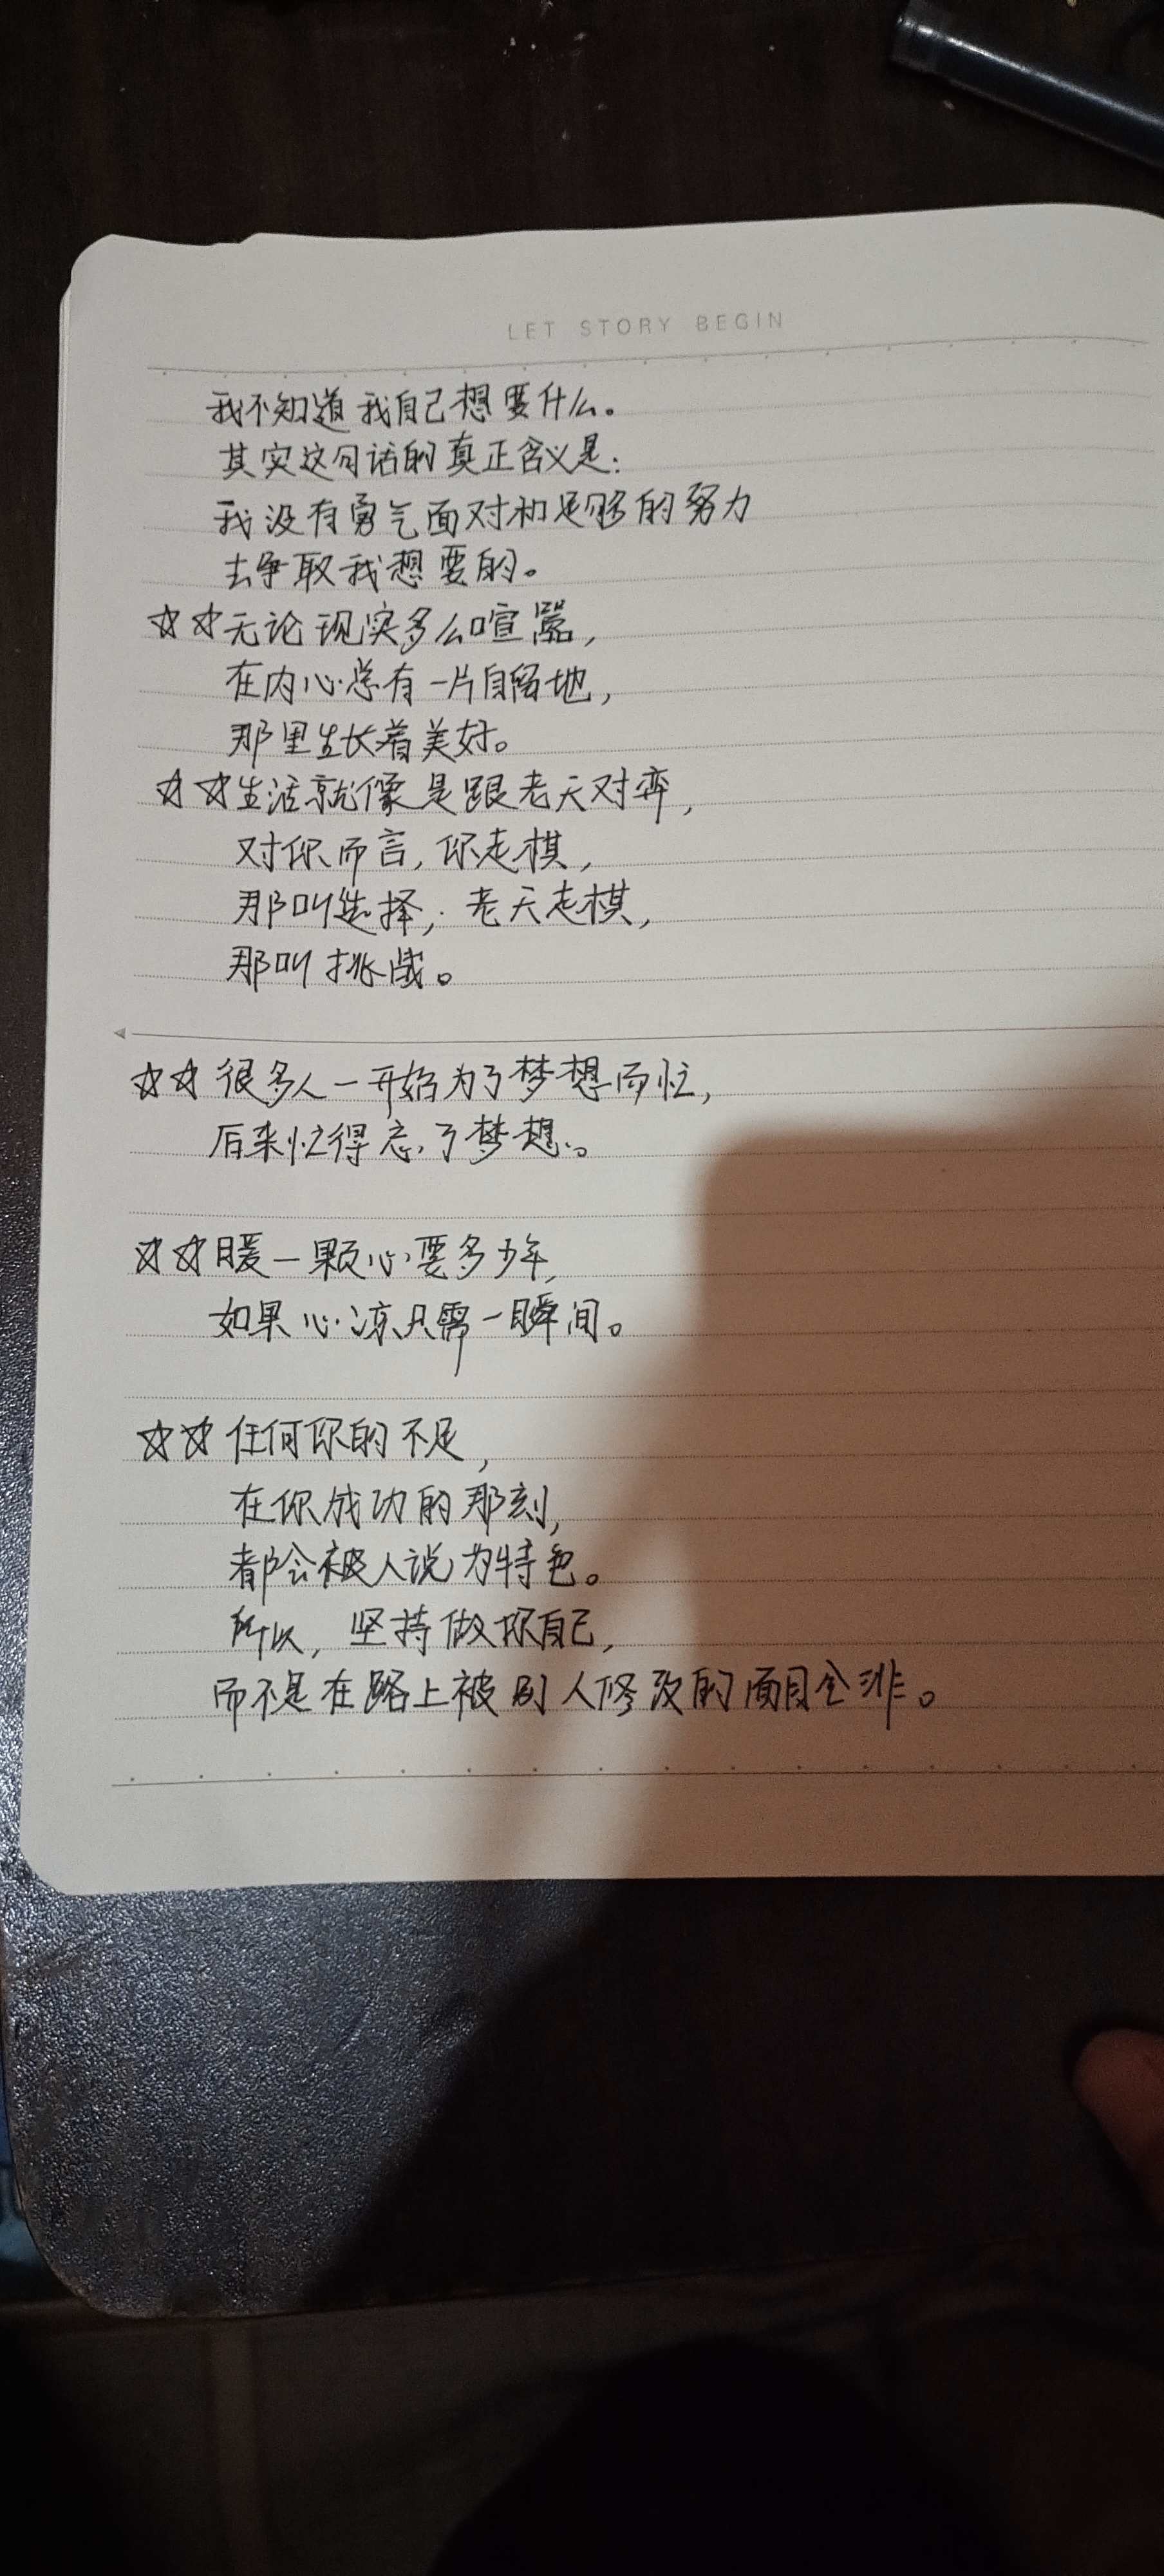 LET STORY BEGIN
我不知道我自己想要什么。
其实这句话的真正含义是：
我没有勇气面对和足够的努力
去争取我想要的。
☆☆无论现实多么喧嚣，
在内心总有一片自留地，
那里生长着美好。
☆☆生活就像是跟老天对弈，
对你而言，你走棋，
那叫选择；老天走棋，
那叫挑战。
☆☆很多人一开始为了梦想而忙，
后来忙得忘了梦想。
☆☆暖一颗心要多少年，
如果心凉只需一瞬间。
☆☆任何你的不足，
在你成功的那刻，
都会被人说为特色。
所以，坚持做你自己，
而不是在路上被别人修改的面目全非。